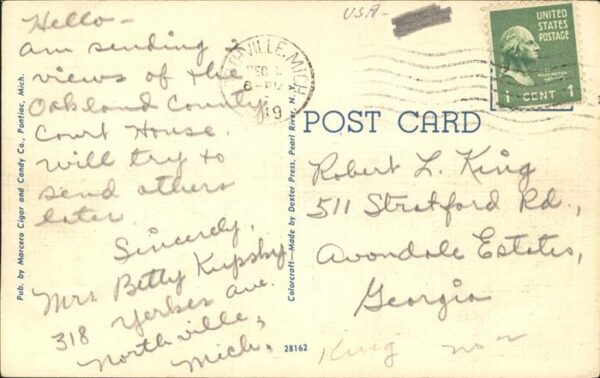 Hello -
am sending
views of the
Oakland County
Court House.
Will try to
send others
later
Sincerely,
Mrs Betty
318 Yerkes Ave.
Northville,
Mich.
Pub. by Marcero Cigar and Candy Co., Pontiac, Mich.
Colorcraft—Made by Dexter Press, Pearl River, N. Y.
28162
USA-
VILLE, MICH
DEC
6-PM
19
UNITED
STATES
POSTAGE
WASHINGTON
1 CENT 1
POST CARD
Robert L. King
511 Stratford Rd.,
Avondale Estates,
Georgia
King